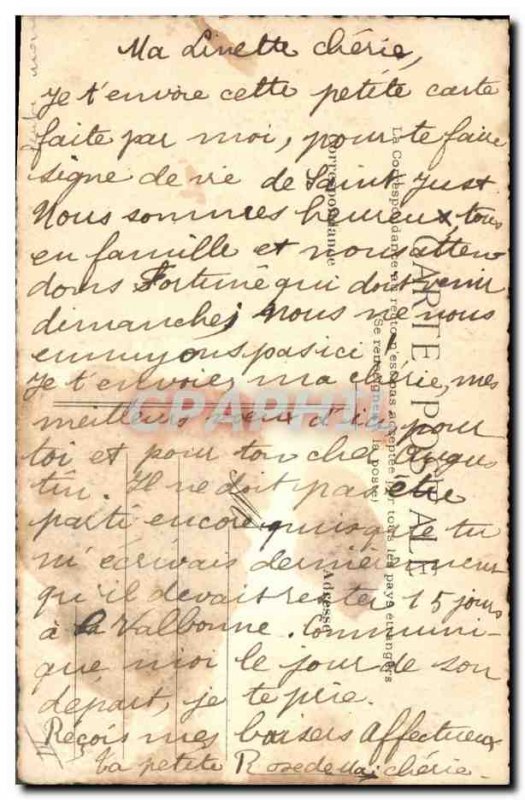 Ma Linette chérie,
Je t'envoie cette petite carte
faite par moi, pour te faire
signe de vie de Saint Just.
Nous sommes heureux, tous
en famille et nous atten
dons Fortuné qui doit venir
dimanche; nous ne nous
ennuyons pas ici!
Je t'envoie, ma chérie, mes
meilleurs d'ici pour
toi et pour ton cher Augus
tin. Il ne doit pas être
parti encore puisque tu
m'écrivais dernièrement
qu'il devait rester 15 jours
à la Valbonne. Communi-
que moi le jour de son
départ, je te prie.
Reçois mes baisers affectueux
ta petite Rose de chérie.
CARTE POSTALE
La Correspondance au recto n'est pas acceptée par tous les pays étrangers
Se renseigner à la poste
Correspondance
Adresse
CPAPHIL